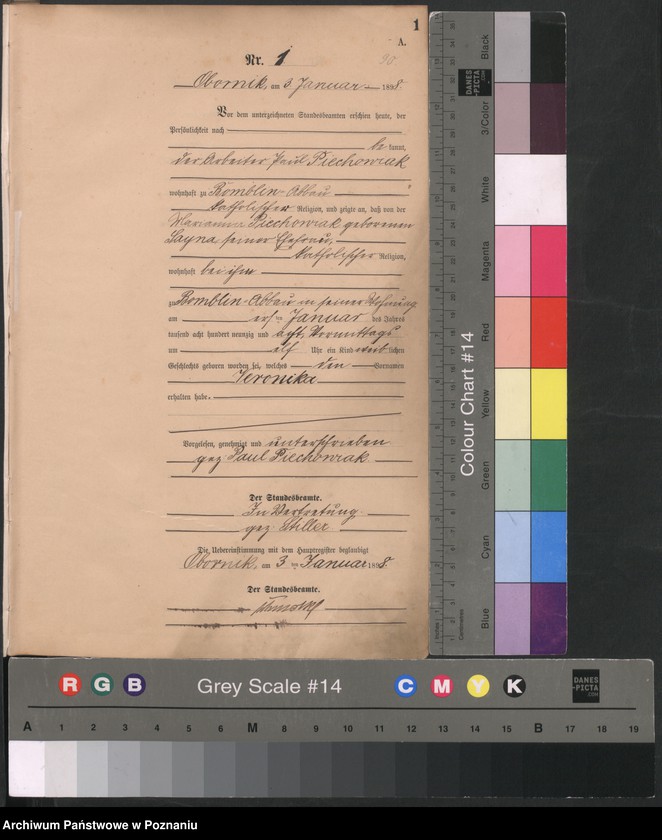 1
A.
Nr. 1
90
Obornik, am 3. Januar 1898.
Vor dem unterzeichneten Standesbeamten erschien heute, der
Persönlichkeit nach
be kannt,
der Arbeiter Paul Piechowiak
wohnhaft zu Bomblin-Abbau
katholischer Religion, und zeigte an, daß von der
Marianna Piechowiak geborenen
seiner Ehefrau,
katholischer Religion,
wohnhaft bei ihm
zu Bomblin-Abbau in seiner Wohnung
am ersten Januar des Jahres
tausend acht hundert neunzig und acht, Vormittags
um elf Uhr ein Kind weiblichen
Geschlechts geboren worden sei, welches den Vornamen
Veronika
erhalten habe.
Vorgelesen, genehmigt und unterschrieben
gez Paul Piechowiak
Der Standesbeamte.
In Vertretung
gez Stiller
Die Uebereinstimmung mit dem Hauptregister beglaubigt
Obornik, am 3 ten Januar 1898.
Der Standesbeamte.
Colour Chart #14
Black
3/Color
White
Magenta
Red
Yellow
Green
Cyan
Blue
DANES-PICTA.COM
Inches
Centimetres
R G B Grey Scale #14 C M Y K
DANES-PICTA.COM
A 1 2 3 4 5 6 M 8 9 10 11 12 13 14 15 B 17 18 19
Archiwum Państwowe w Poznaniu